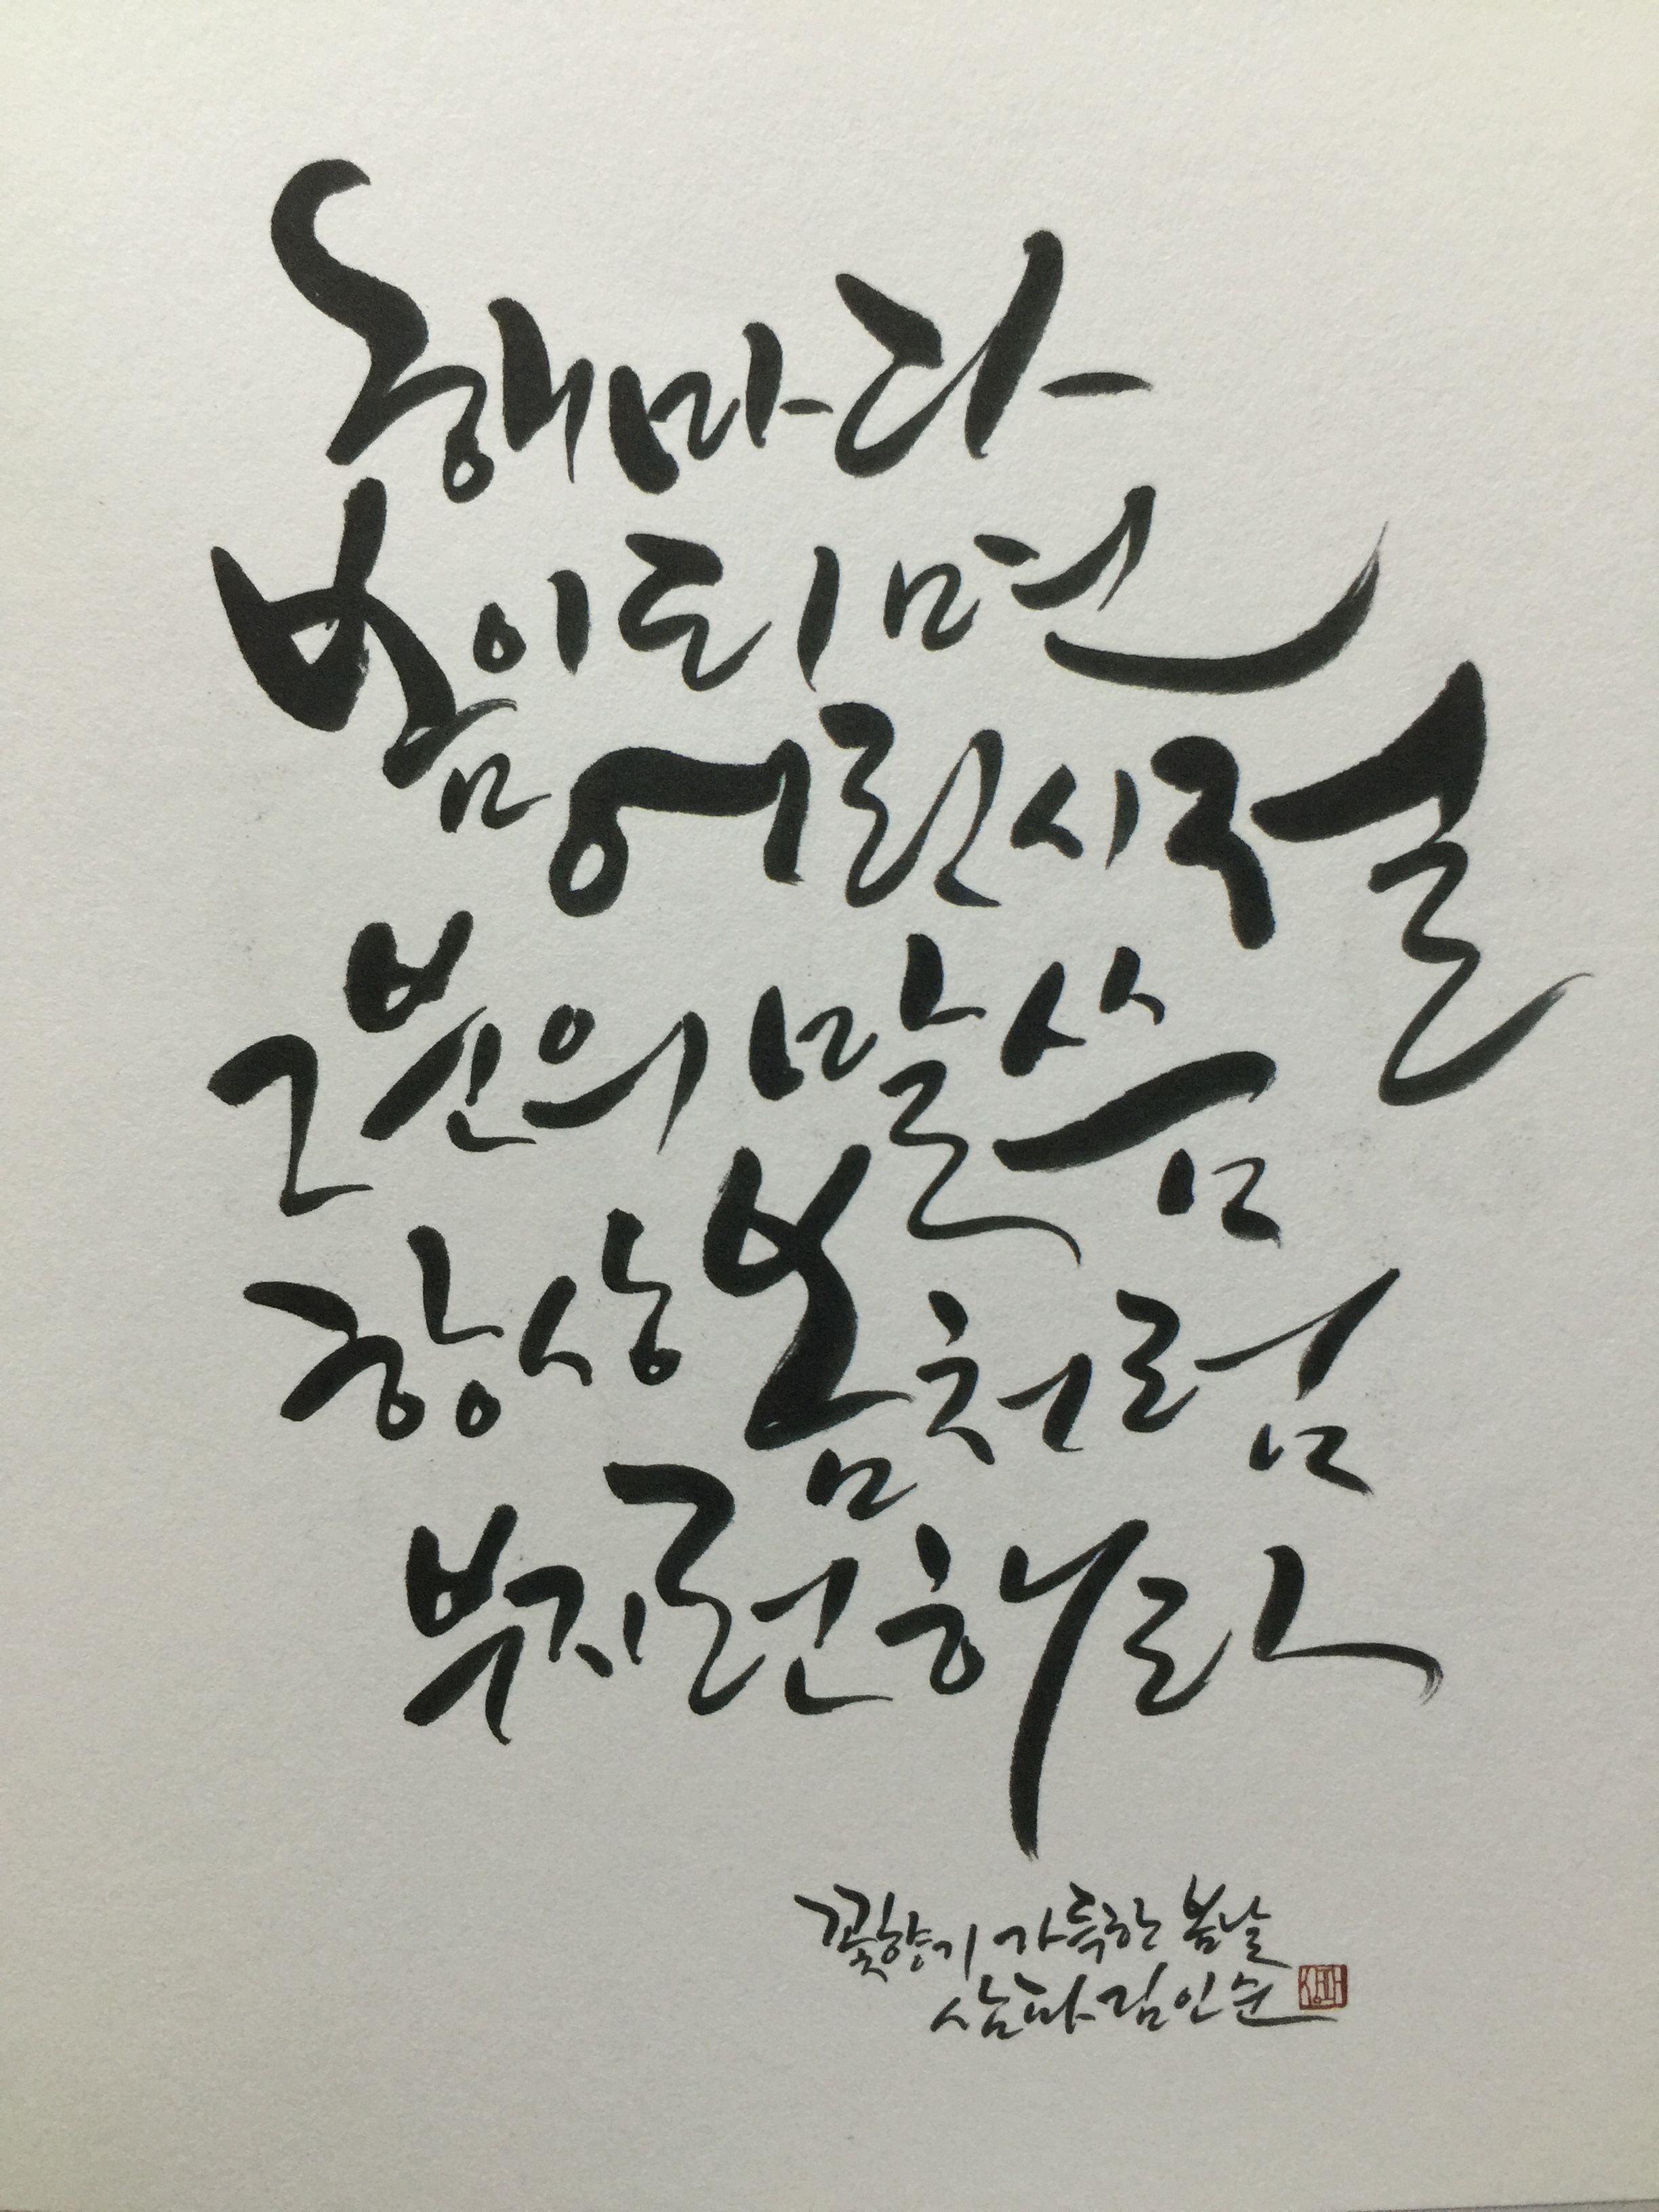 해마다
봄이되면
어린시절
그분의 말씀
항상 봄처럼
부지런해라
꽃향기 가득한 봄날
김인순